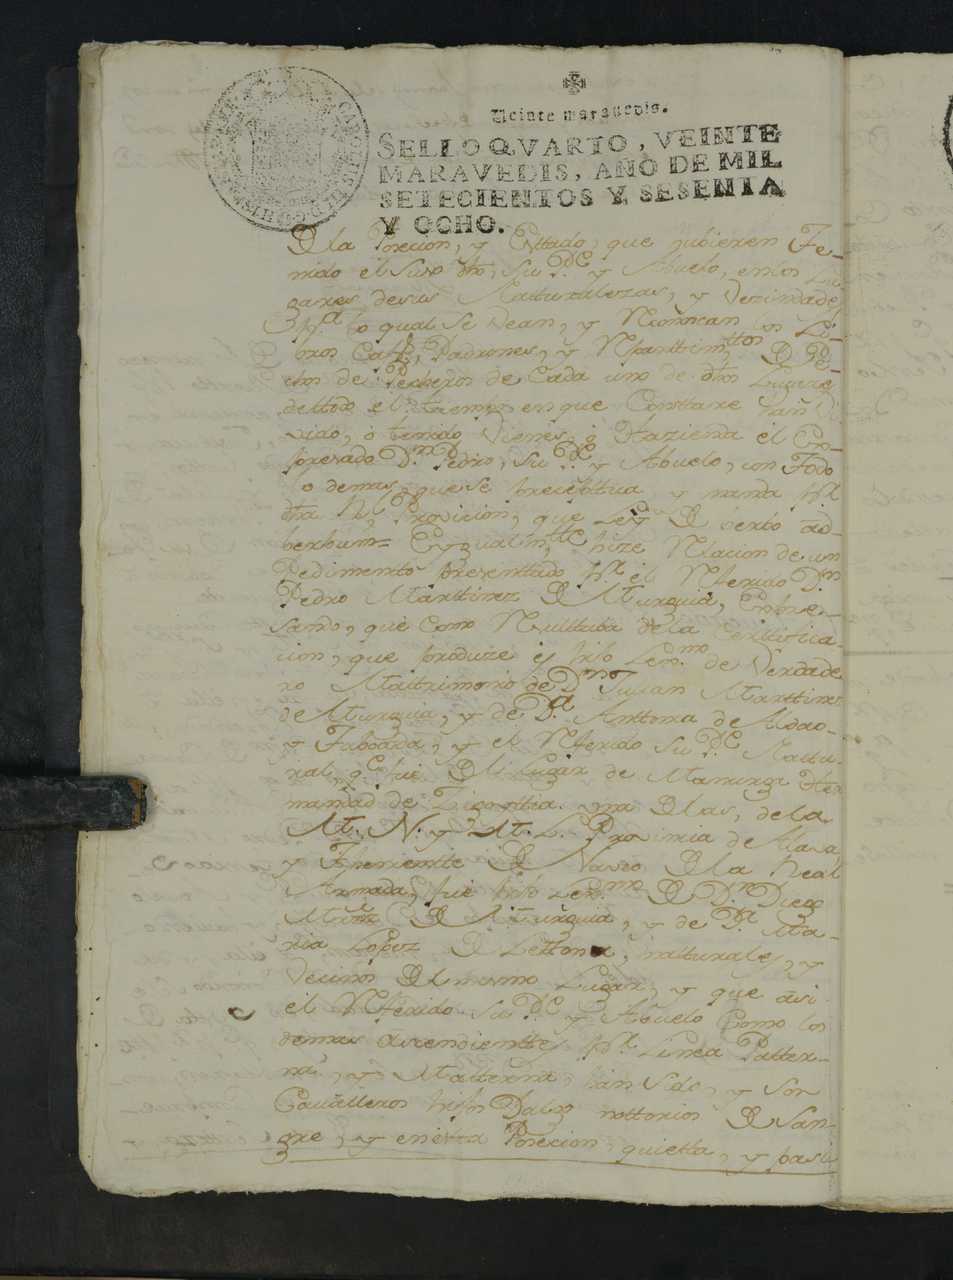 Veinte maravedis.
SELLO QVARTO, VEINTE
MARAVEDIS, AÑO DE MIL
SETECIENTOS Y SESENTA
Y OCHO.
De la Posecion, y Esttado, que hubieren Te-
nido el Suso dho, su Pe. y Abuelo, en los Lu-
gares de sus Natturalezas, y Vezindades
Pa. lo qual se vean, y Reconoscan los Li-
bros Padrones, y Reparttimttos. De Pe-
chos de Pecheros de Cada uno de dhos Lugares
de ttodo el ttiempo en que Consttare han Vi-
vido, ô tenido Vienes, ô Hazienda el Ex-
presado Dn. Pedro, su Pe. y Abuelo, con Todo
lo demas, que se precepttua y manda pr.
dha Rl. Provicion, que Ley De verbo ad
berbum= Eygualmtte hize Relacion de un
Pedimento presenttado pr. el Referido Dn.
Pedro Marttinez De Murguia, Expre-
sando, que como Resulttaba de la Certtifica-
cion, que produze es hijo Lexmo. de Verdade-
ro Mattrimonio de Dn. Julian Marttinez
de Murguia, y de Da. Anttonia de Aldao
y Taboada, y el Referido su Pe. Nattu-
ral, qe. fue Del Lugar de Manurga Her-
mandad de Zigoittia una De las, de la
M. N. y M. L. Provincia de Alava
y Theniente De Navio De la Real
Armada, fue hijo Lexmo. De Dn. Diego
Mrnz De Murguia, y de Da. Ma-
ria Lopez De Lettona, natturales, y
Vecinos Del mismo Lugar, y que asi
el Referido su Pe. y Abuelo Como los
demas Ascendienttes pr. Linea Patter-
na, y Matterna, han sido, y son
Cavalleros hijos Dalgo nottorios De San-
gre, y en estta Posecion, quietta, y pasi